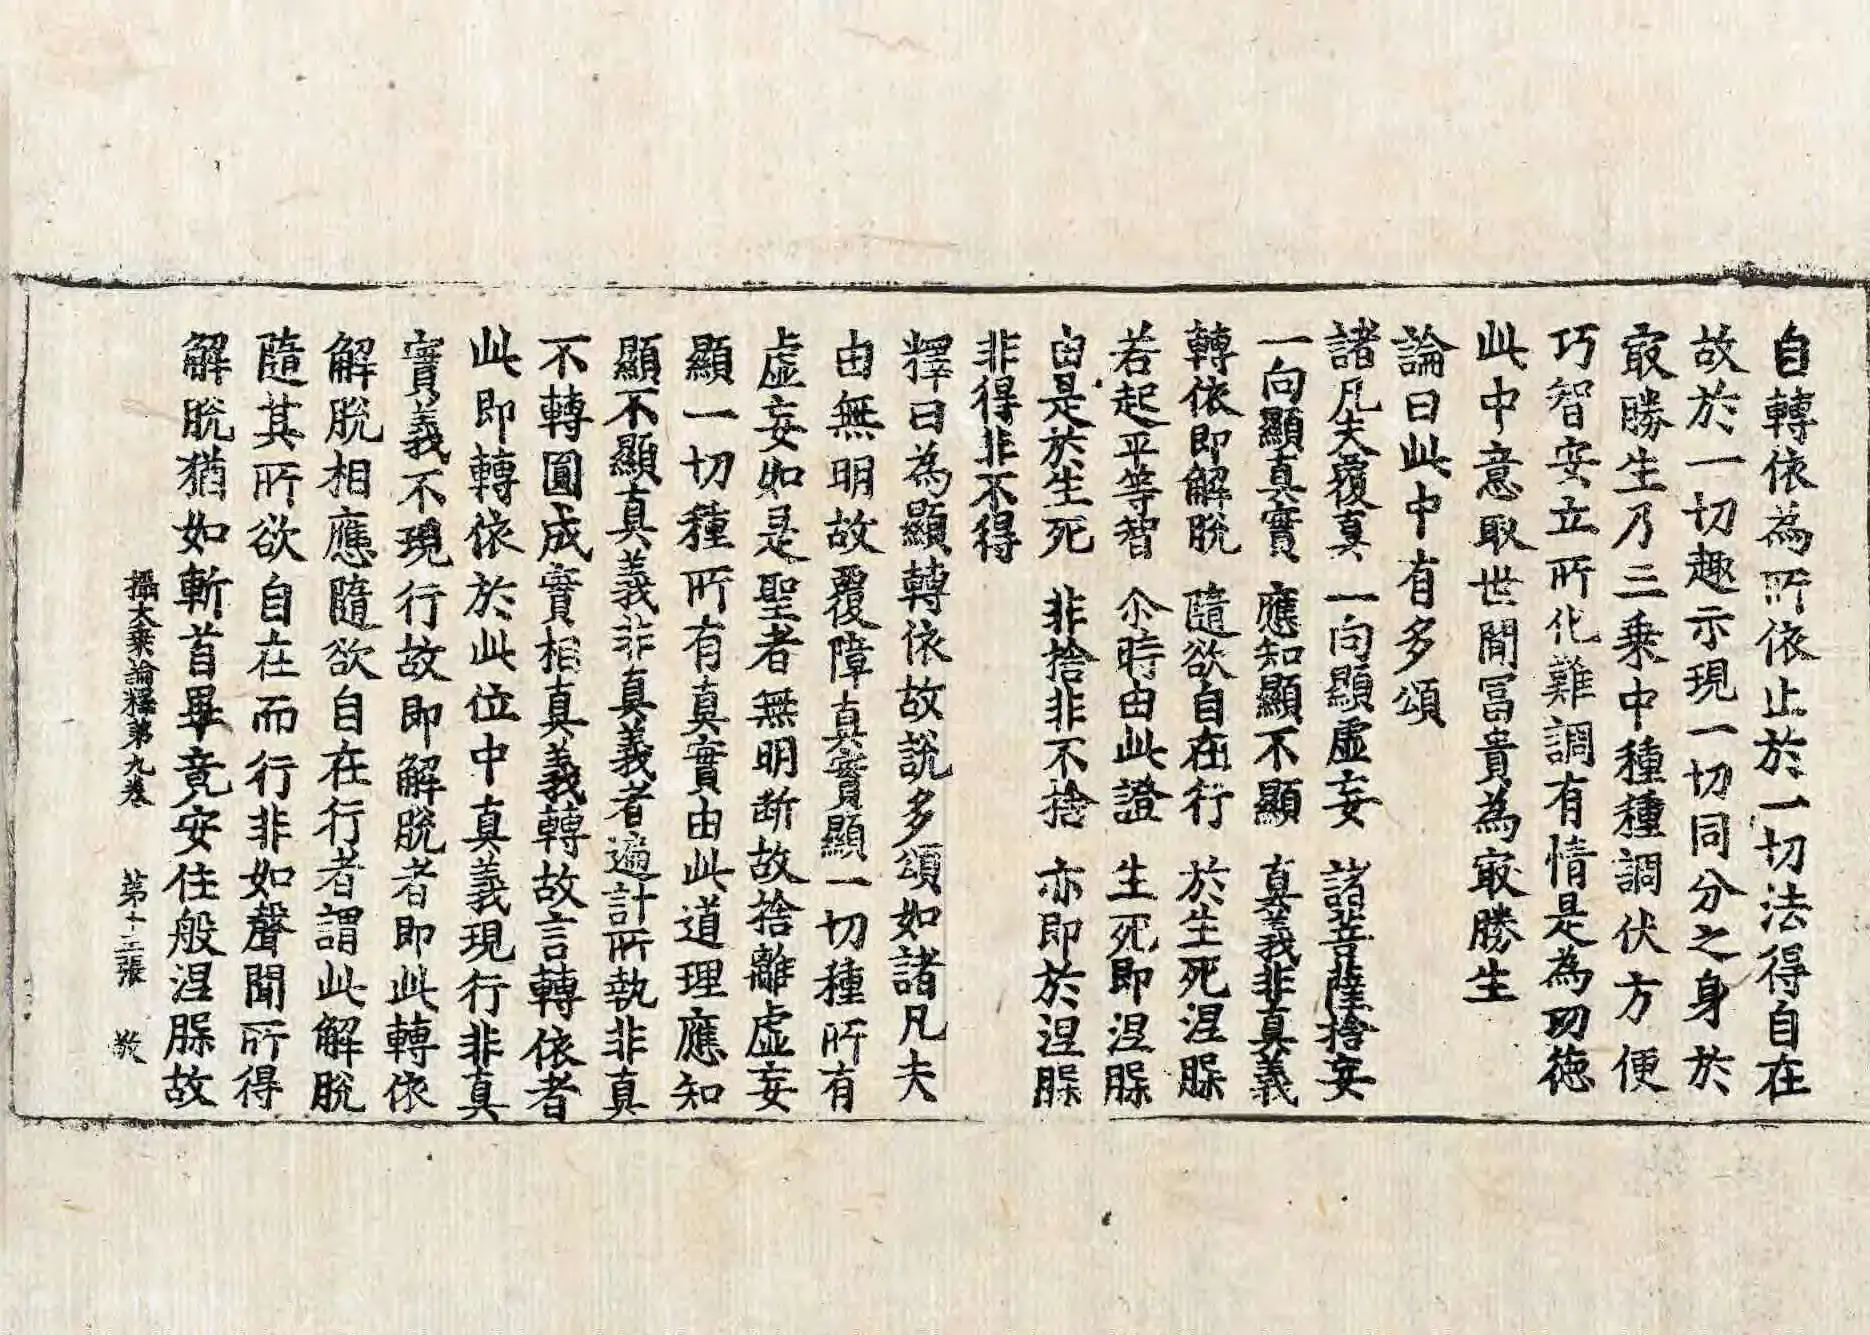 自轉依為所依止於一切法得自在
故於一切趣示現一切同分之身於
㝡勝生乃三乘中種種調伏方便
巧智安立所化難調有情是為功德
此中意取世間冨貴為㝡勝生
論曰此中有多頌
諸凡夫覆真　一向顯虛妄　諸菩薩捨妄
一向顯真實　應知顯不顯　真義非真義
轉依即解脫　隨欲自在行　於生死涅槃
若起平等智　尒時由此證　生死即涅槃
由是於生死　非捨非不捨　亦即於涅槃
非得非不得
釋曰為顯轉依故說多頌如諸凡夫
由無明故覆障真實顯一切種所有
虛妄如是聖者無明断故捨離虛妄
顯一切種所有真實由此道理應知
顯不顯真義非真義者遍計所執非真
不轉圓成實相真義轉故言轉依者
此即轉依於此位中真義現行非真
實義不現行故即解脫者即此轉依
解脫相應隨欲自在行者謂此解脫
隨其所欲自在而行非如聲聞所得
解脫猶如斬首畢竟安住般涅槃故
攝大乘論釋第九卷　第十三張　敬